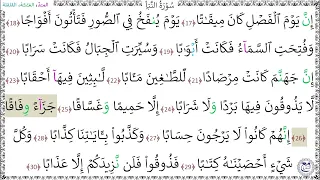 سُورَةُ النَّبَإِ
إِنَّ يَوْمَ الْفَصْلِ كَانَ مِيقَٰتًا ﴿17﴾ يَوْمَ يُنفَخُ فِي الصُّورِ فَتَأْتُونَ أَفْوَاجًا ﴿18﴾
وَفُتِحَتِ السَّمَآءُ فَكَانَتْ أَبْوَٰبًا ﴿19﴾ وَسُيِّرَتِ الْجِبَالُ فَكَانَتْ سَرَابًا ﴿20﴾
إِنَّ جَهَنَّمَ كَانَتْ مِرْصَادًا ﴿21﴾ لِّلطَّٰغِينَ مَـَٔابًا ﴿22﴾ لَّٰبِثِينَ فِيهَآ أَحْقَابًا ﴿23﴾
لَّا يَذُوقُونَ فِيهَا بَرْدًا وَلَا شَرَابًا ﴿24﴾ إِلَّا حَمِيمًا وَغَسَّاقًا ﴿25﴾ جَزَآءً وِفَاقًا
﴿26﴾ إِنَّهُمْ كَانُوا لَا يَرْجُونَ حِسَابًا ﴿27﴾ وَكَذَّبُوا بِـَٔايَٰتِنَا كِذَّابًا ﴿28﴾ وَكُلَّ
شَيْءٍ أَحْصَيْنَٰهُ كِتَٰبًا ﴿29﴾ فَذُوقُوا فَلَن نَّزِيدَكُمْ إِلَّا عَذَابًا ﴿30﴾